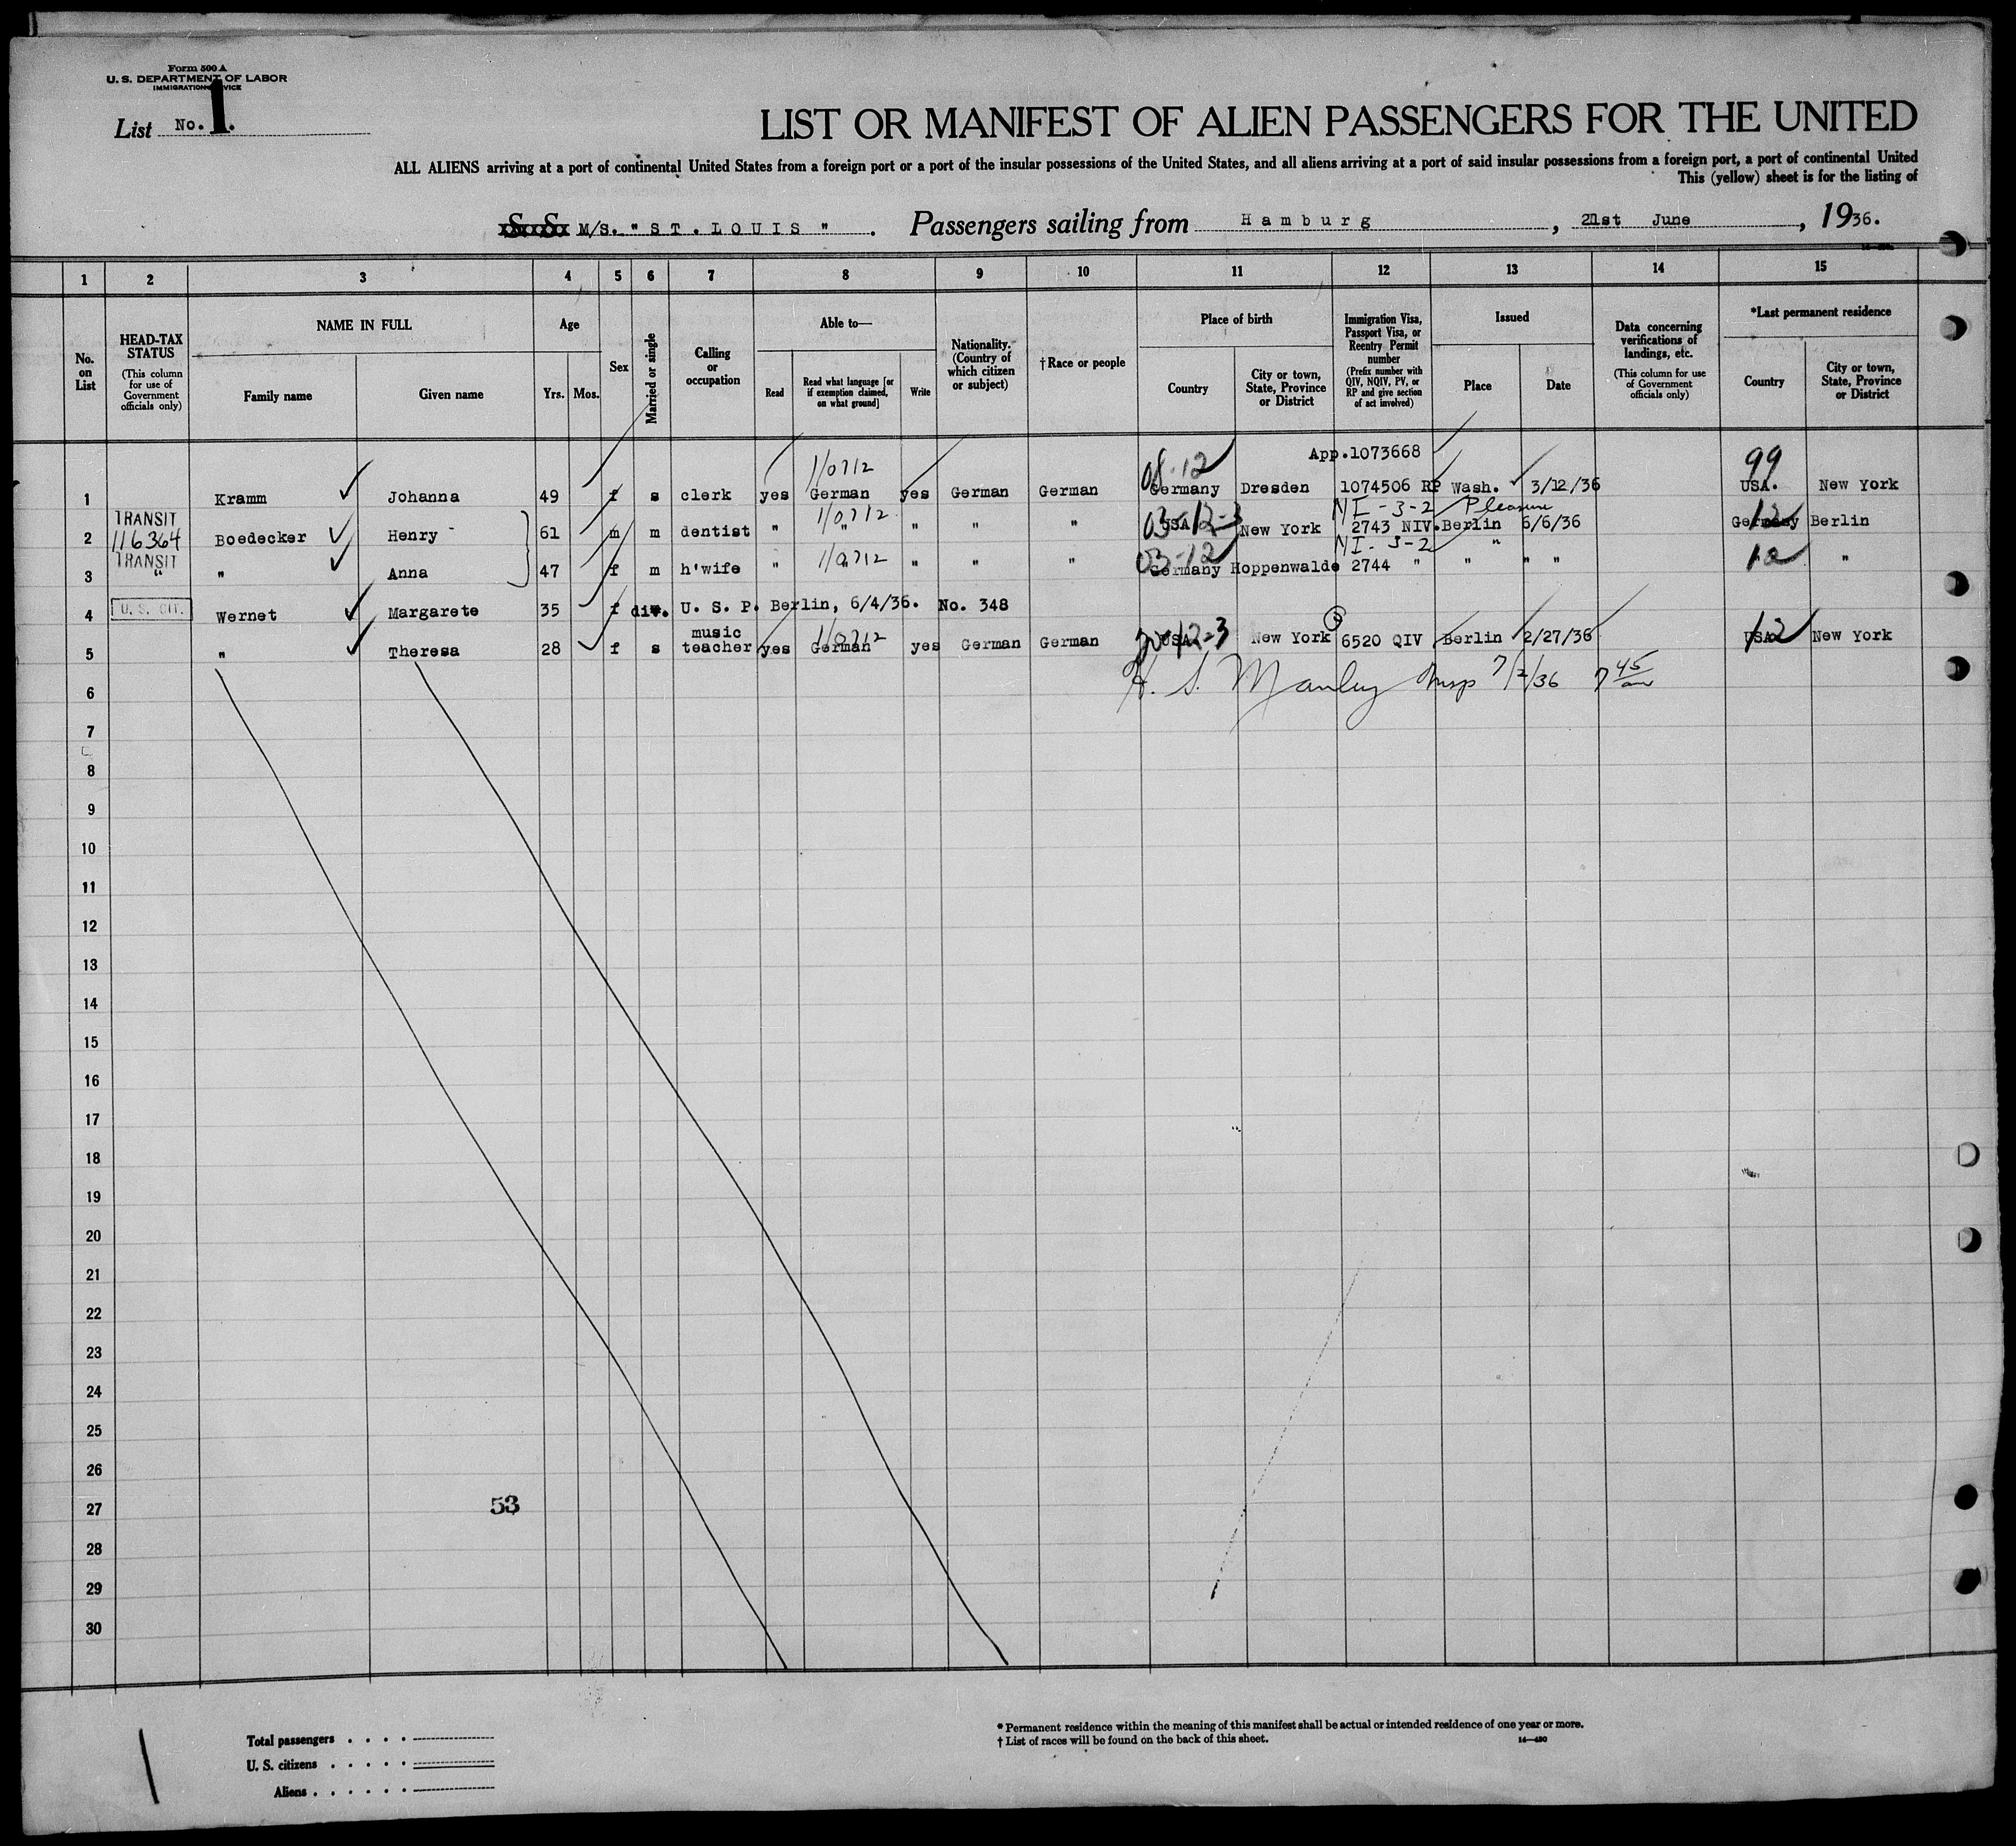 Form 500 A
U. S. DEPARTMENT OF LABOR
IMMIGRATION SERVICE
List No. 1.
LIST OR MANIFEST OF ALIEN PASSENGERS FOR THE UNITED
ALL ALIENS arriving at a port of continental United States from a foreign port or a port of the insular possessions of the United States, and all aliens arriving at a port of said insular possessions from a foreign port, a port of continental United
This (yellow) sheet is for the listing of
S. S. M/S. "ST.LOUIS". Passengers sailing from Hamburg, 21st June, 1936.
1 2 3 4 5 6 7 8 9 10 11 12 13 14 15
No. on List
HEAD-TAX STATUS (This column for use of Government officials only)
NAME IN FULL
Family name Given name
Age
Yrs. Mos.
Sex
Married or single
Calling or occupation
Able to—
Read Read what language [or if exemption claimed, on what ground] Write
Nationality. (Country of which citizen or subject)
†Race or people
Place of birth
Country City or town, State, Province or District
Immigration Visa, Passport Visa, or Reentry Permit number (Prefix number with QIV, NQIV, PV, or RP and give section of act involved)
Issued
Place Date
Data concerning verifications of landings, etc. (This column for use of Government officials only)
*Last permanent residence
Country City or town, State, Province or District
App.1073668
08-12 99
1 Kramm Johanna 49 f s clerk yes German yes German German Germany Dresden 1074506 RP Wash. 3/12/36 USA. New York
TRANSIT NI-3-2 Pleasure
2 116364 Boedecker Henry 61 m m dentist " " " " " USA 03-12-3 New York 2743 NIV. Berlin 6/6/36 Germany 12 Berlin
TRANSIT NI-3-2 "
3 " " Anna 47 f m h'wife " " " " " Germany 03-12 Hoppenwalde 2744 " " " " 12 "
4 U. S. CIT. Wernet Margarete 35 f div. U. S. P. Berlin, 6/4/36. No. 348
music
5 " Theresa 28 f s teacher yes German yes German German USA 12-3 New York 6520 QIV Berlin 2/27/36 USA 12 New York
6 H. S. Manley Insp 7/2/36 7 45 am
7
8
9
10
11
12
13
14
15
16
17
18
19
20
21
22
23
24
25
26
27 53
28
29
30
Total passengers
U. S. citizens
Aliens
* Permanent residence within the meaning of this manifest shall be actual or intended residence of one year or more.
† List of races will be found on the back of this sheet. 14—430